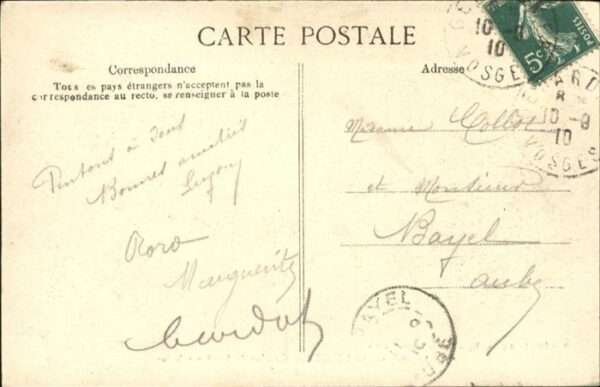 CARTE POSTALE
Correspondance
Tous les pays étrangers n'acceptent pas la
correspondance au recto, se renseigner à la poste
Adresse
à tous
Bonnes amitiés
Roro
Marguerite
Madame Collot
et Monsieur
Bayel
Aube
POSTES
5c
10-8
10
VOSGES
ARD
8
10-9
10
VOSGES
BAYEL